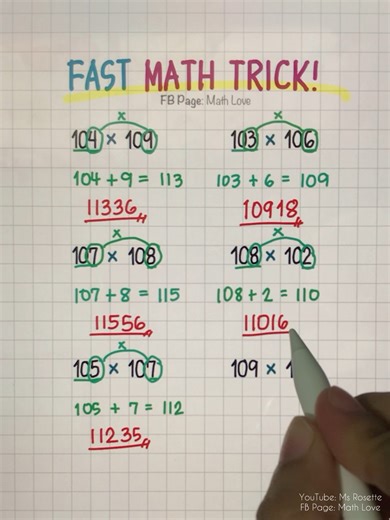 FAST MATH TRICK!
FB Page: Math Love
x
104 × 109
104 + 9 = 113
11336
x
103 × 106
103 + 6 = 109
10918
x
107 × 108
107 + 8 = 115
11556
x
108 × 102
108 + 2 = 110
11016
x
105 × 107
105 + 7 = 112
11235
109 × 1
YouTube: Ms Rosette
FB Page: Math Love